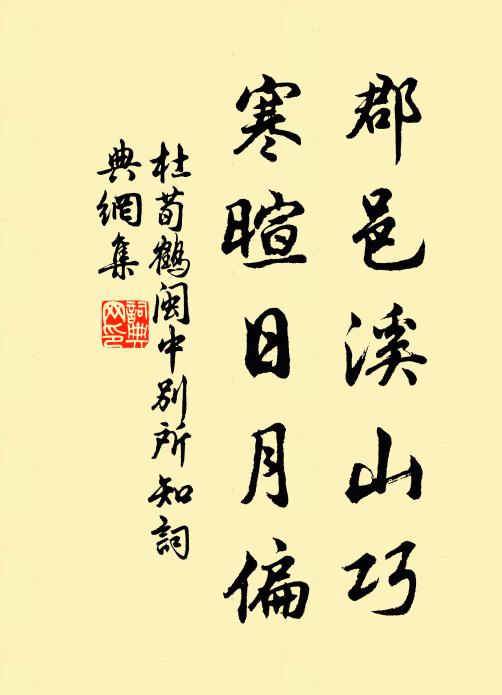 郡邑溪山巧
寒暄日月偏
杜荀鶴閩中別所知詞
典網集
詞典
网印